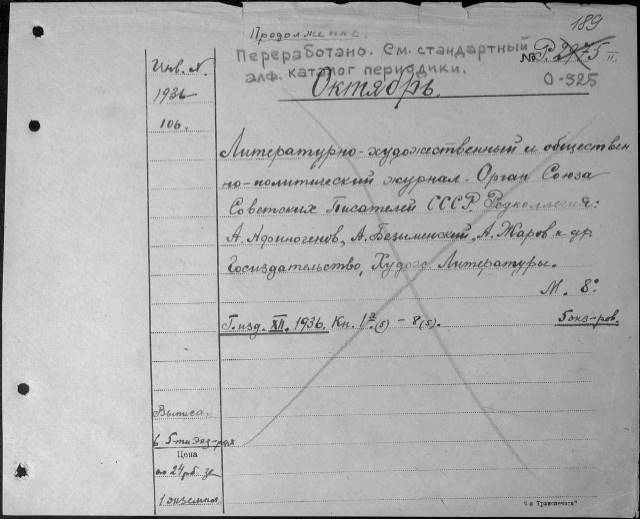 189
Продолжение.
Переработано. См. стандартный
алф. каталог периодики.
№ Р. 2775 II.
О-525
Октябрь.
Инв. N.
1936
106.
Литературно-художественный и обществен
но-политический журнал. Орган Союза
Советских Писателей СССР. Редколлегия:
А. Афиногенов, А. Безыменский, А. Жаров и др
Госиздательство, Худож. Литературы.
М. 8°
Г. изд. XII. 1936. Кн. 1 (5) – 8 (5).
5 экз-ров.
Выписа.
в 5-ти экз-рах
Цена
по 24 рб. за
1 экземпл